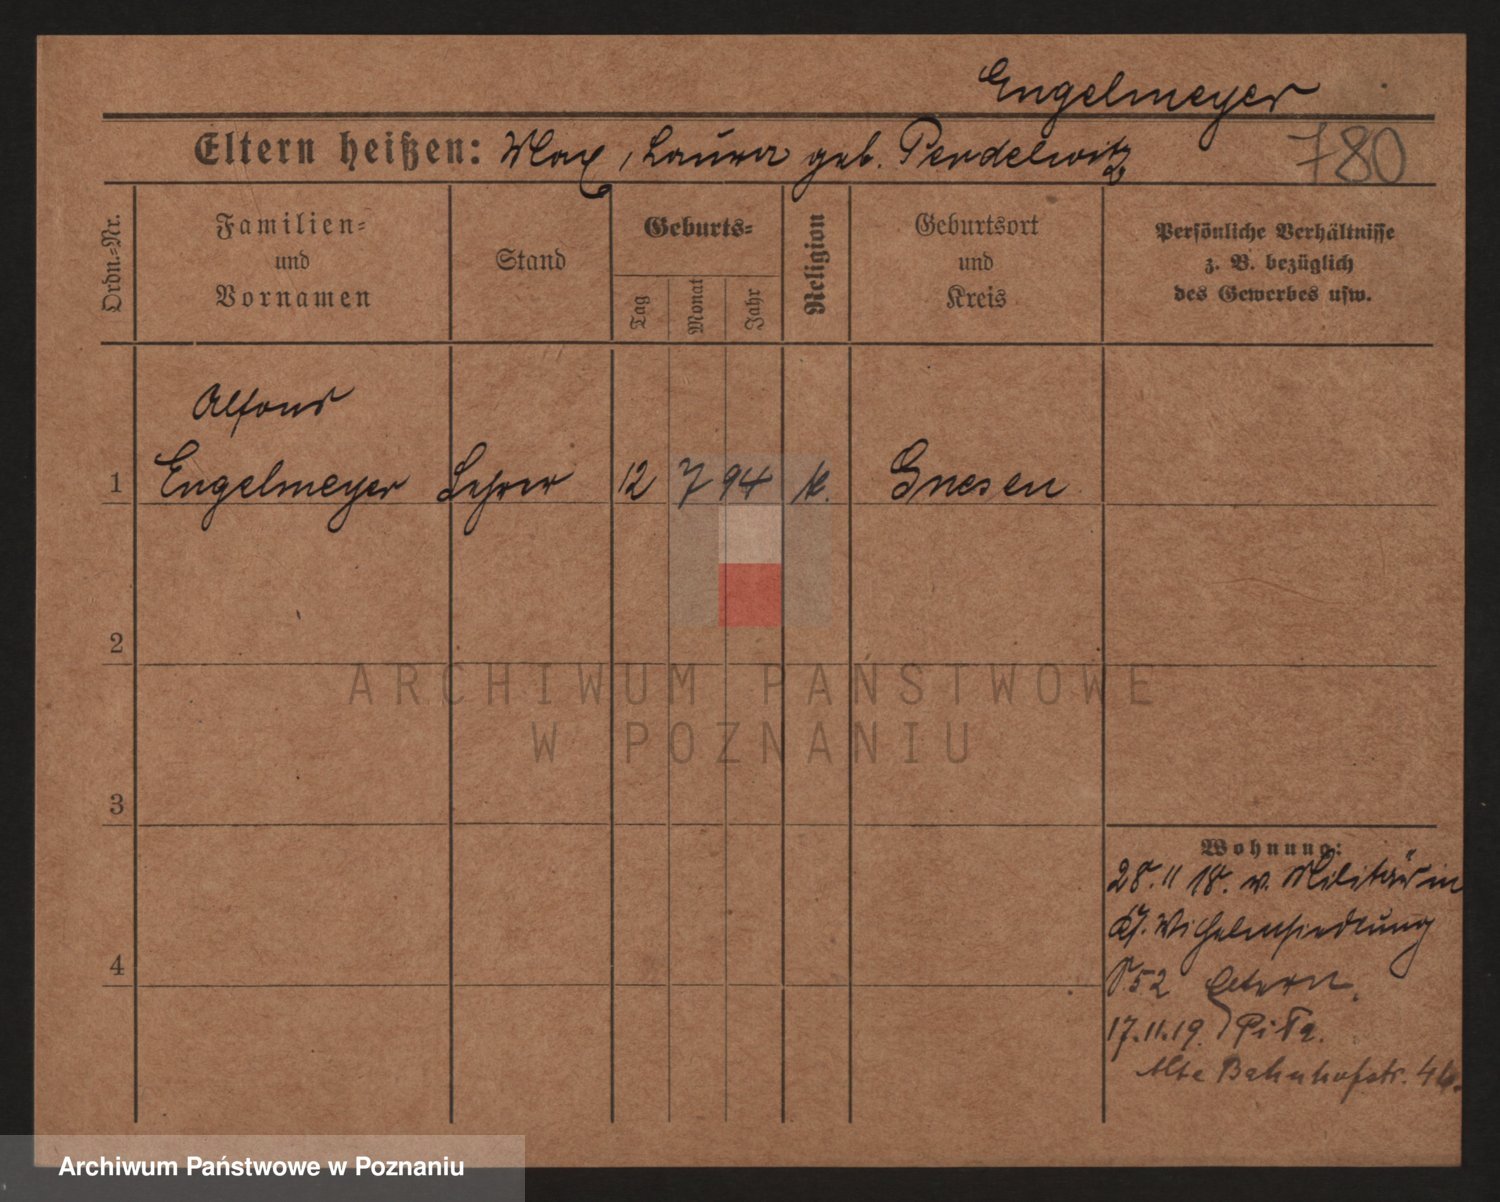 Engelmeyer
Eltern heißen: Max, Laura geb. Pendelwitz
780
Ordn.-Nr.
Familien- und Vornamen
Stand
Geburts-
Tag
Monat
Jahr
Religion
Geburtsort und Kreis
Persönliche Verhältnisse
z. B. bezüglich
des Gewerbes usw.
Alfons
1 Engelmeyer Lehrer 12 7 94 k. Gnesen
2
ARCHIWUM PAŃSTWOWE
W POZNANIU
3
Wohnung:
28. 11 18. v. Militär in
Wilhelmsiedlung
52 Eltern.
4
17.11.19.
Alte Bahnhofstr.
Archiwum Państwowe w Poznaniu